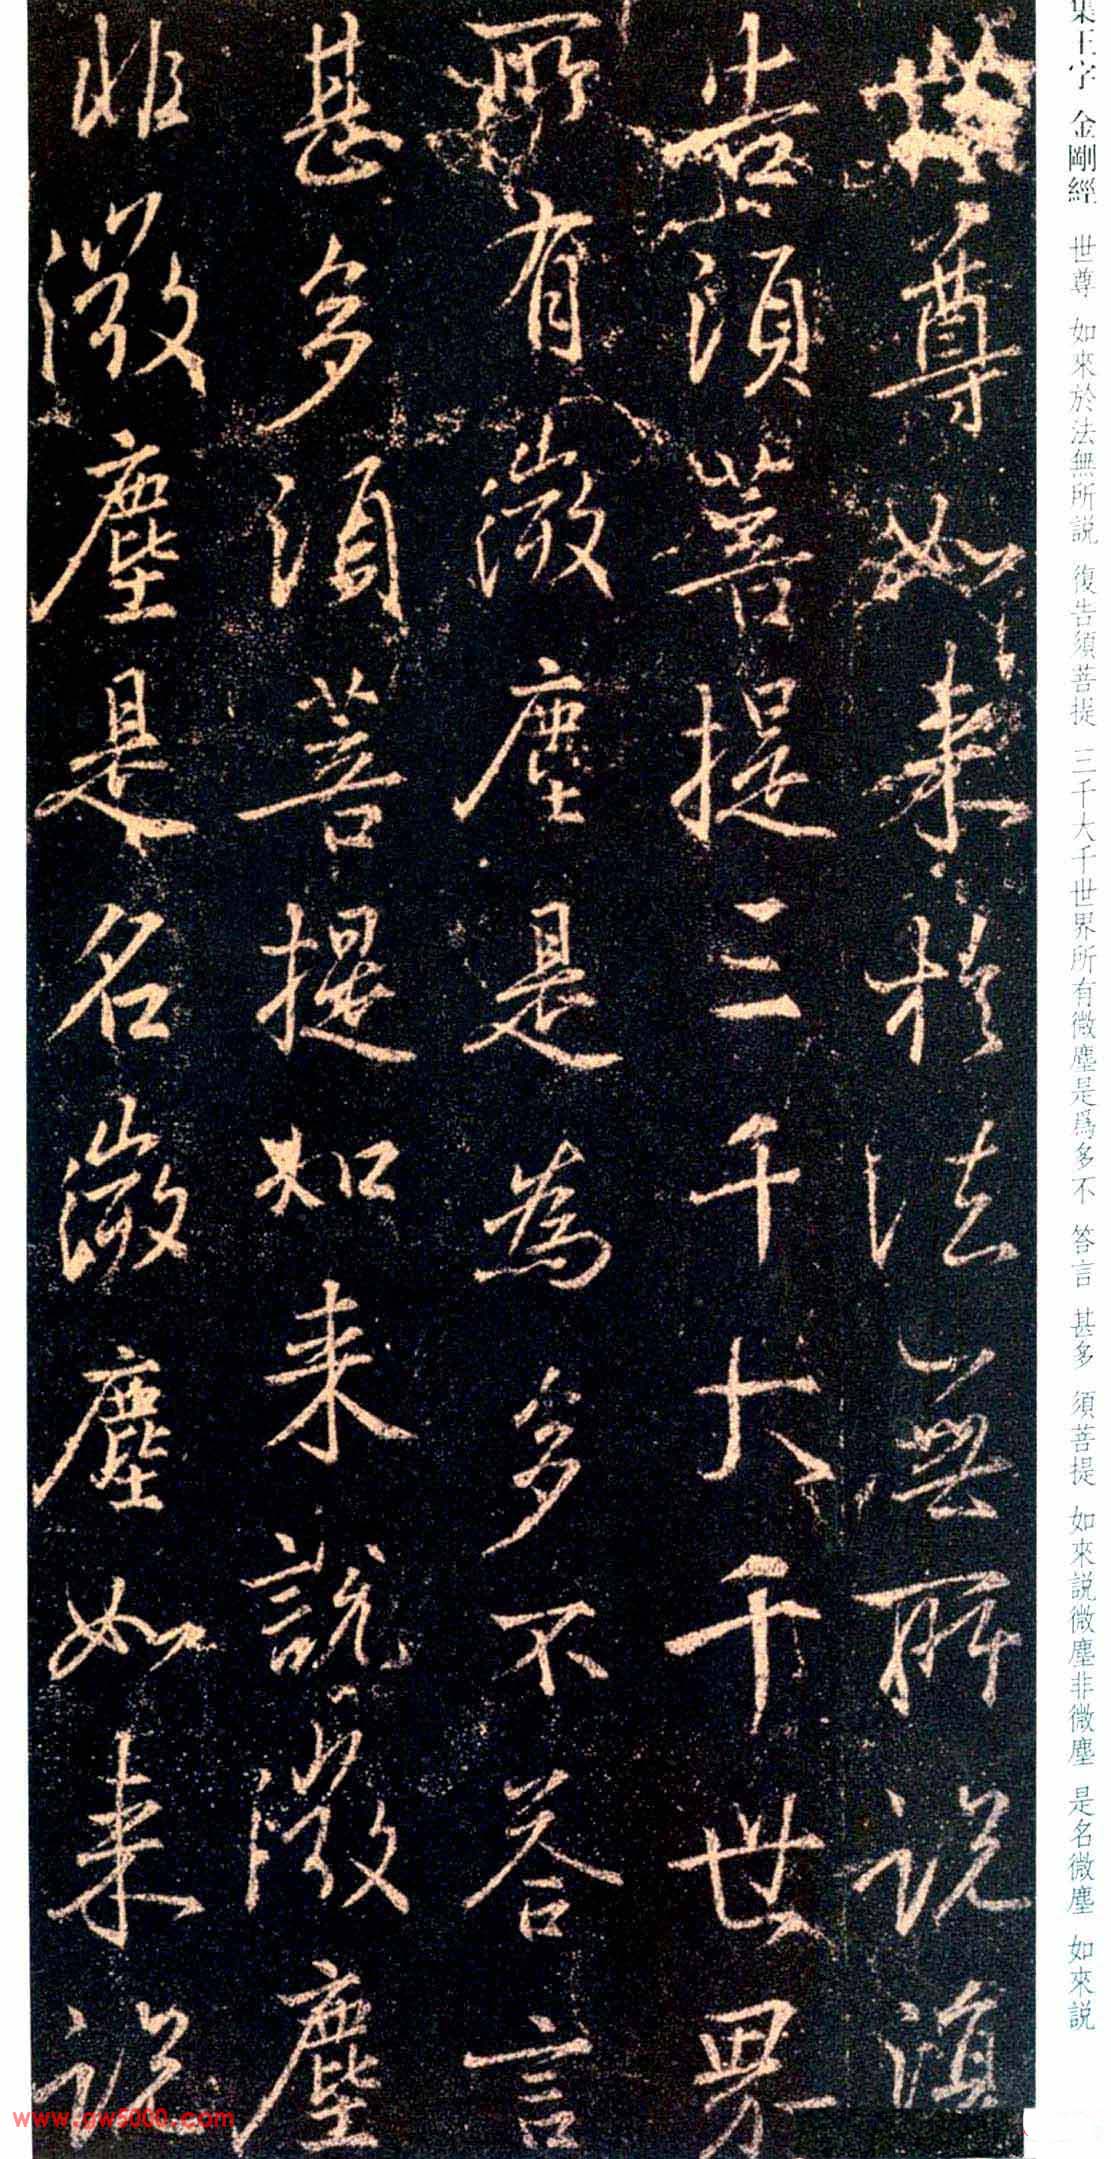 集王字 金剛經 世尊 如來於法無所説 復告須菩提 三千大千世界所有微塵是爲多不 答言 甚多 須菩提 如來説微塵非微塵 是名微塵 如來説
世尊如来於法無所說復
告須菩提三千大千世界
所有微塵是為多不答言
甚多須菩提如来說微塵
非微塵是名微塵如来說
www.gw5000.com